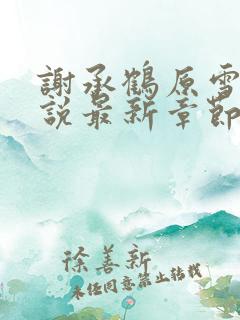 謝承鶴原雪
説最新章節
徐善新
未經同意禁止轉載